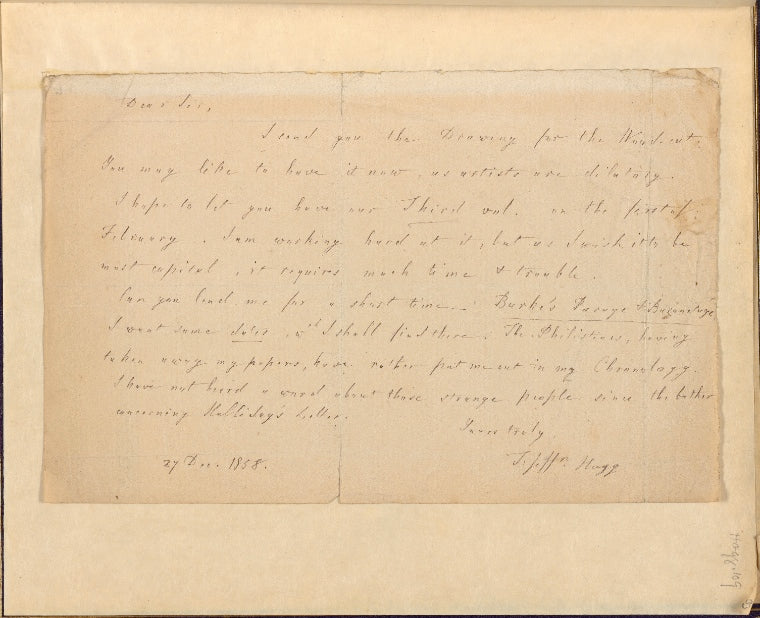 Dear Sir,
I send you the Drawing for the Wood-cut.
You may like to have it now, as artists are dilatory.
I hope to let you have our Third vol. on the first of
February. I am working hard at it, but as I wish it to be
most capital, it requires much time & trouble.
Can you lend me for a short time Burke's Peerage & Baronetage
I want some dates, wh I shall find there: The Philistines, having
taken away my papers, have rather put me out in my Chronology.
I have not heard a word about those strange people since the bother
concerning Halliday's Letter.
Yours truly,
T. Jeffn Hogg
27 Dec. 1858.
Hogg